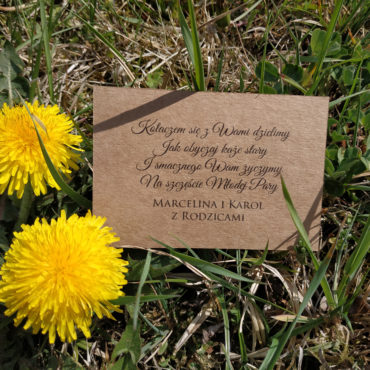 Kołaczem się z Wami dzielimy
Jak obyczaj każe stary
I smacznego Wam życzymy
Na szczęście Młodej Pary
Marcelina i Karol
z Rodzicami